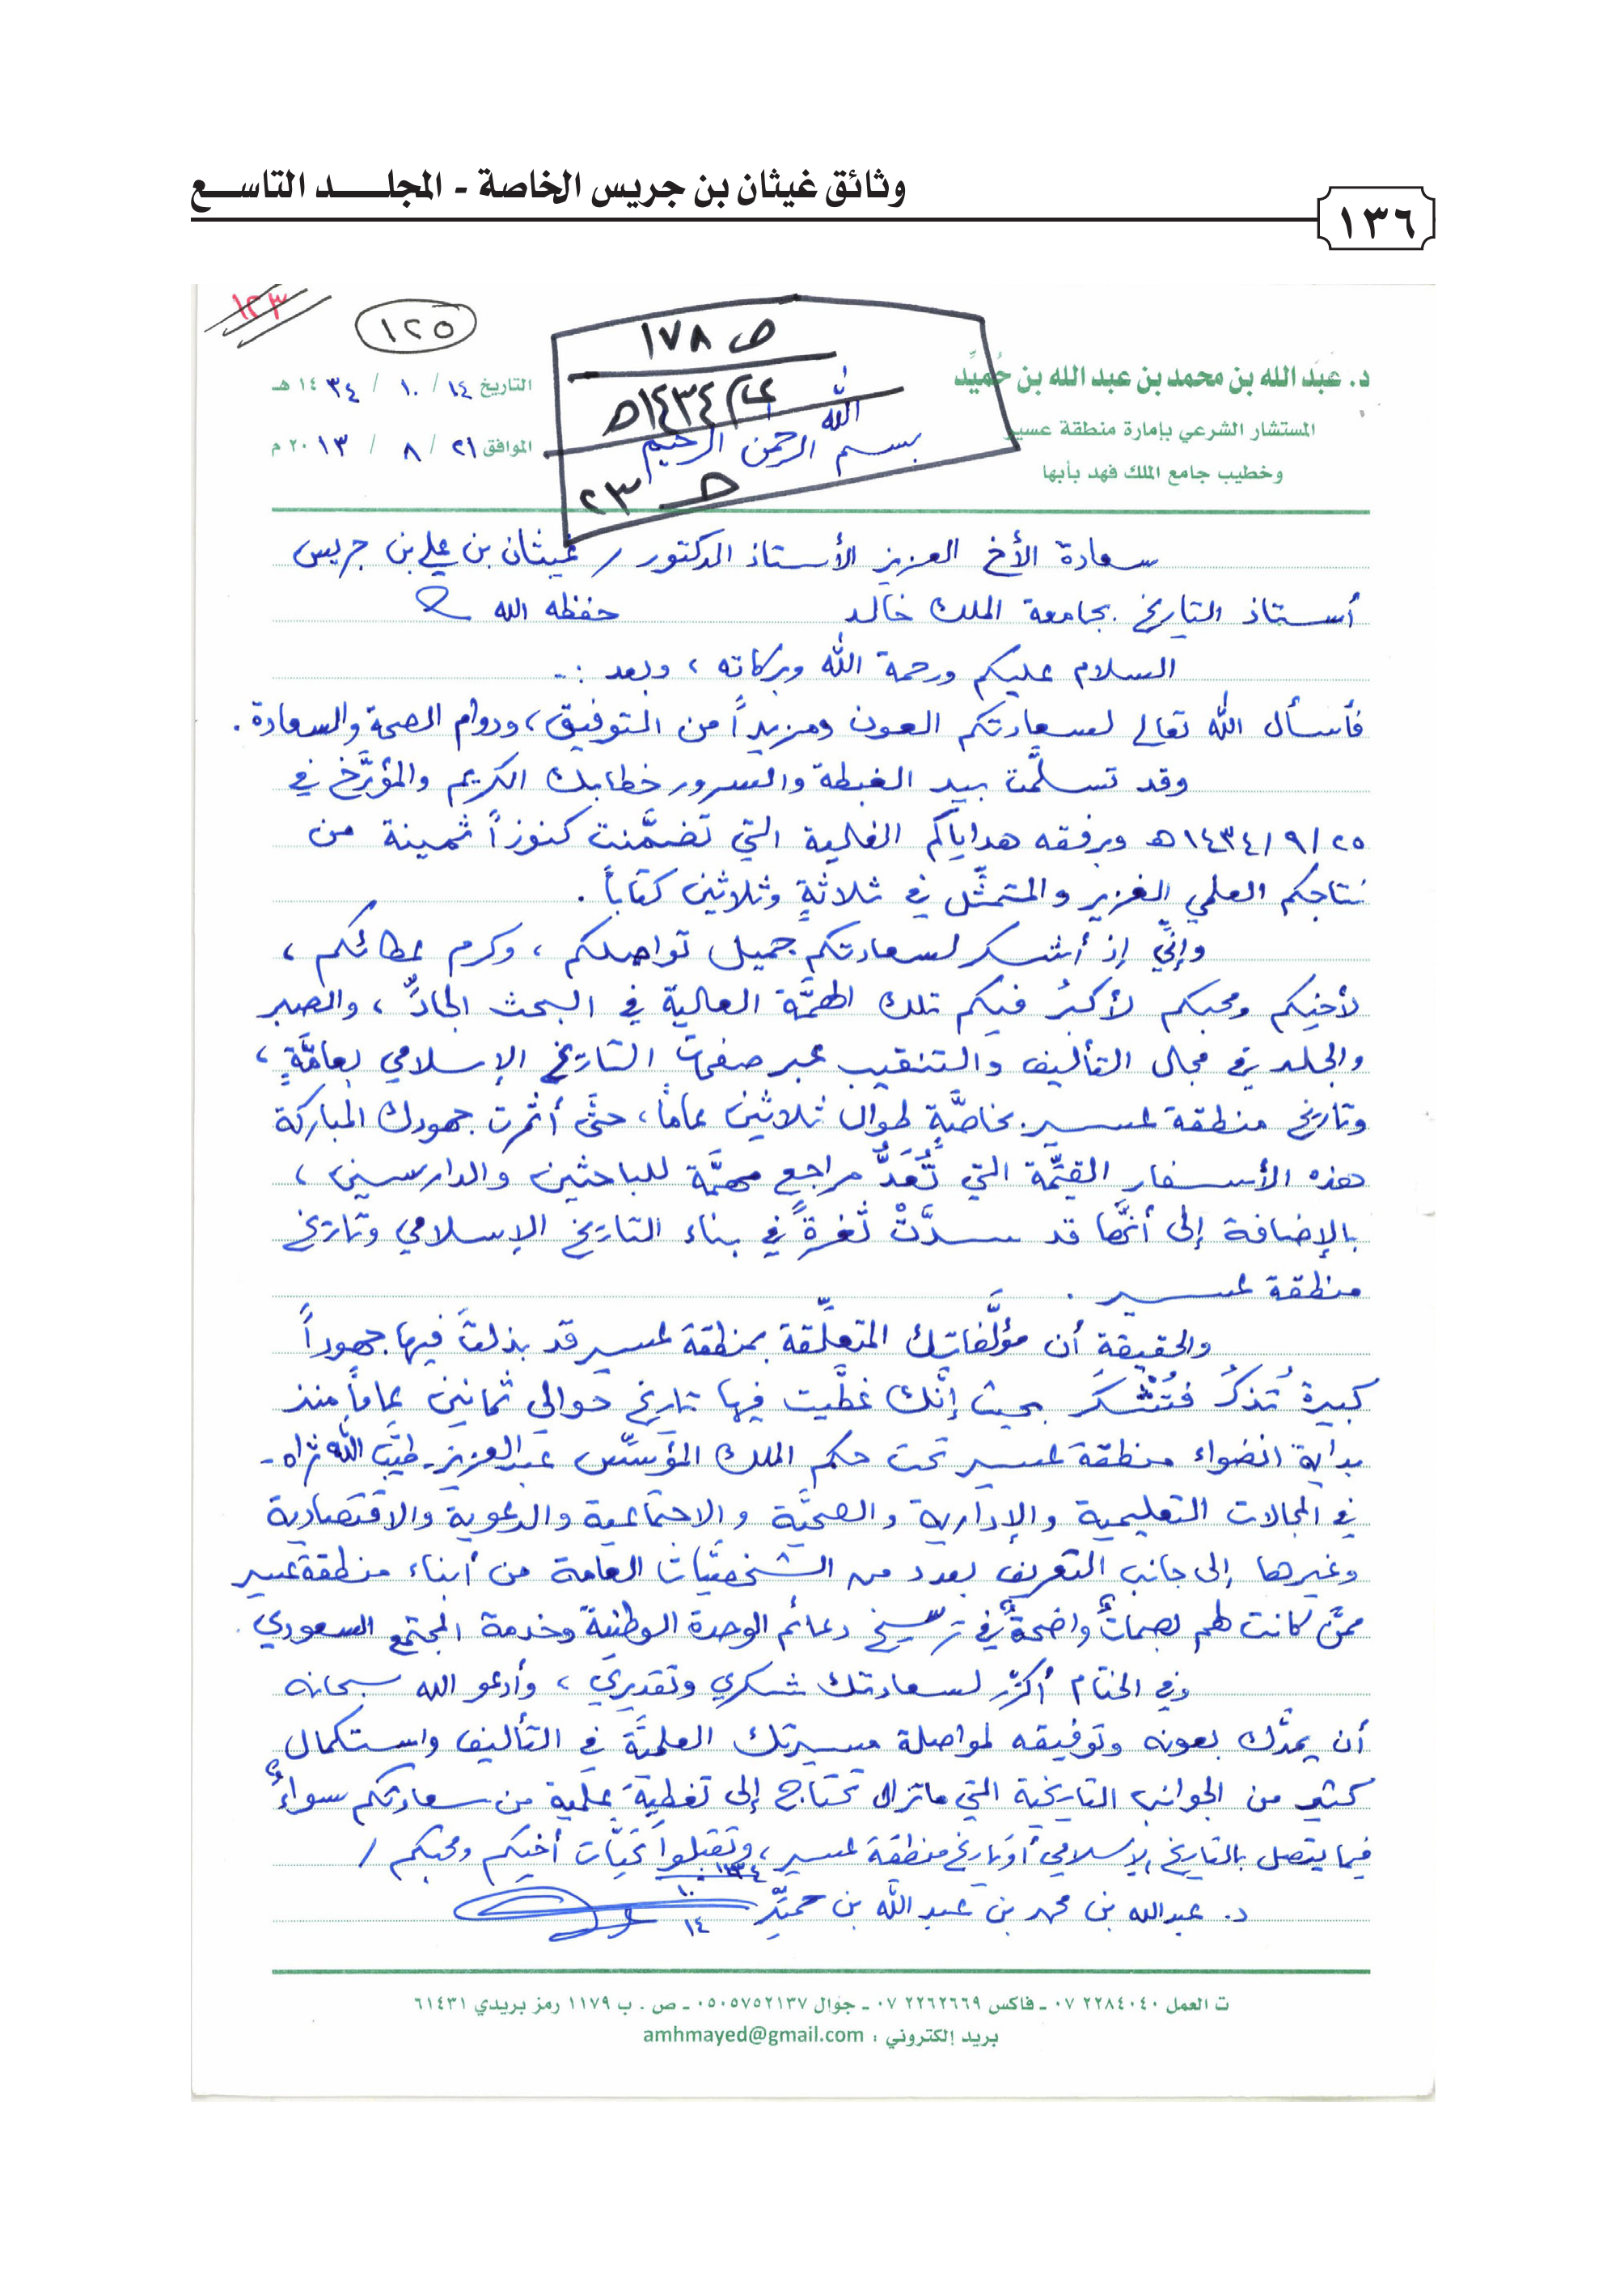 وثائق غيثان بن جريس الخاصة - المجلد التاسع
١٣٦
١٢٣
١٢٥
ص ١٧٨
١٤٣٤هـ
حـ ٢٣
د. عبد الله بن محمد بن عبد الله بن حُميِّد
المستشار الشرعي بإمارة منطقة عسير
وخطيب جامع الملك فهد بأبها
التاريخ ١٤ / ١٠ / ١٤٣٤ هـ
الموافق ٢١ / ٨ / ٢٠١٣ م
بسم الله الرحمن الرحيم
سعادة الأخ العزيز الأستاذ الدكتور / غيثان بن علي بن جريس
أستاذ التاريخ بجامعة الملك خالد حفظه الله
السلام عليكم ورحمة الله وبركاته ، وبعد :-
فأسأل الله تعالى لسعادتكم العون ومزيداً من التوفيق ، ودوام الصحة والسعادة .
وقد تسلَّمت بيد الغبطة والسرور خطابك الكريم والمؤرَّخ في
٢٥/٩/١٤٣٤هـ وبرفقه هداياكم الغالية التي تضمَّنت كنوزاً ثمينة من
نتاجكم العلمي الغزير والمتمثِّل في ثلاثةٍ وثلاثين كتاباً .
وإنِّي إذ أشكر لسعادتكم جميل تواصلكم ، وكرم عطائكم ،
لأخيكم ومحبكم لأكبرُ فيكم تلك الهمَّة العالية في البحث الجادِّ ، والصبر
والجلد في مجال التأليف والتنقيب عبر صفحات التاريخ الإسلامي بعامَّةٍ ،
وتاريخ منطقة عسير بخاصَّةٍ طوال ثلاثين عاماً ، حتَّى أثمرت جهودك المباركة
هذه الأسفار القيِّمة التي تُعَدُّ مراجع مهمَّة للباحثين والدارسين ،
بالإضافة إلى أنَّها قد سدَّتْ ثغرةً في بناء التاريخ الإسلامي وتاريخ
منطقة عسير .
والحقيقة أن مؤلَّفاتك المتعلِّقة بمنطقة عسير قد بذلتَ فيها جهوداً
كبيرةً تُذكرُ فتُشكَرُ بحيث إنَّك غطَّيت فيها تاريخ حوالي ثمانين عاماً منذ
بداية انضواء منطقة عسير تحت حكم الملك المؤسِّس عبدالعزيز - طيَّب الله ثراه -
في المجالات التعليمية والإدارية والصحيَّة والاجتماعية والدعوية والاقتصادية
وغيرها إلى جانب التعريف بعدد من الشخصيَّات العامة من أبناء منطقة عسير
ممَّن كانت لهم بصماتٌ واضحةٌ في ترسيخ دعائم الوحدة الوطنية وخدمة المجتمع السعودي .
وفي الختام أكرِّر لسعادتك شكري وتقديري ، وأدعو الله سبحانه
أن يمدَّك بعونه وتوفيقه لمواصلة مسيرتك العلميَّة في التأليف واستكمال
كثير من الجوانب التاريخية التي ماتزال تحتاج إلى تغطية علمية من سعادتكم سواءً
فيما يتصل بالتاريخ الإسلامي أو تاريخ منطقة عسير ، وتقبلوا تحيَّات أخيكم ومحبكم /
د. عبدالله بن محمد بن عبدالله بن حميِّد
١٤
ت العمل ٢٢٨٤٠٤٠ ٠٧ - فاكس ٢٢٦٢٦٦٩ ٠٧ - جوال ٠٥٠٥٧٥٢١٣٧ - ص . ب ١١٧٩ رمز بريدي ٦١٤٣١
بريد إلكتروني : amhmayed@gmail.com